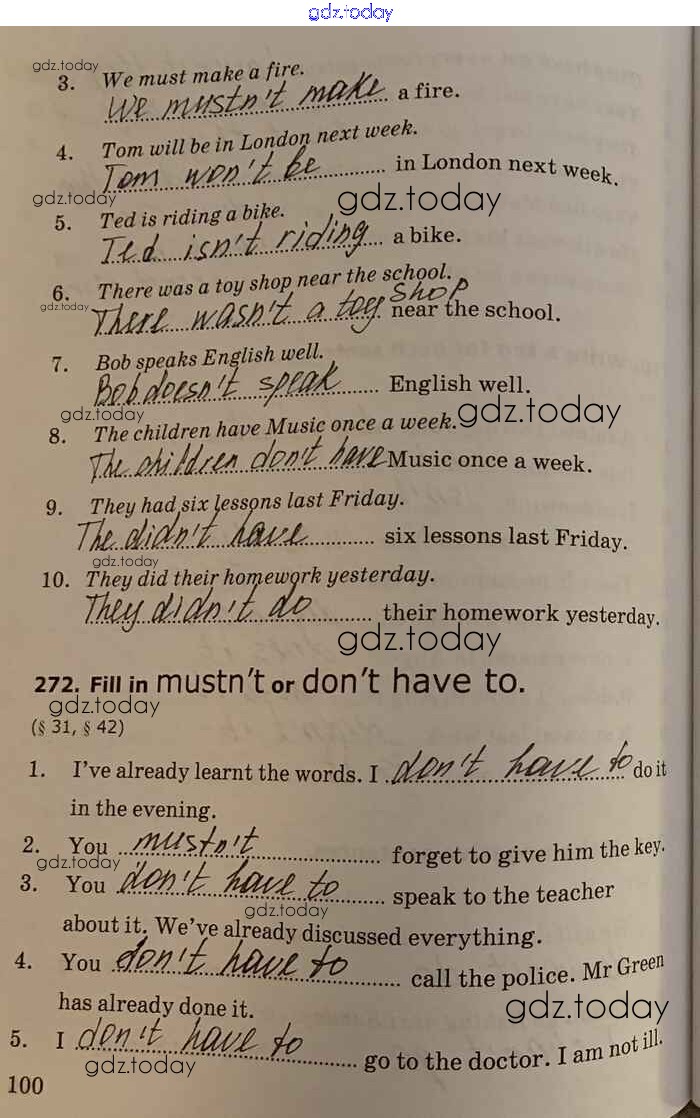 gdz.today
gdz.today
3. We must make a fire.
We mustn't make a fire.
4. Tom will be in London next week.
Tom won't be in London next week.
gdz.today
gdz.today
5. Ted is riding a bike.
Ted isn't riding a bike.
6. There was a toy shop near the school.
gdz.today
There wasn't a toy shop near the school.
7. Bob speaks English well.
Bob doesn't speak English well.
gdz.today
gdz.today
8. The children have Music once a week.
The children don't have Music once a week.
9. They had six lessons last Friday.
The didn't have six lessons last Friday.
gdz.today
10. They did their homework yesterday.
They didn't do their homework yesterday.
gdz.today
272. Fill in mustn't or don't have to.
gdz.today
(§ 31, § 42)
1. I've already learnt the words. I don't have to do it
in the evening.
2. You mustn't forget to give him the key.
gdz.today
3. You don't have to speak to the teacher
gdz.today
about it. We've already discussed everything.
4. You don't have to call the police. Mr Green
has already done it.
gdz.today
5. I don't have to go to the doctor. I am not ill.
gdz.today
100